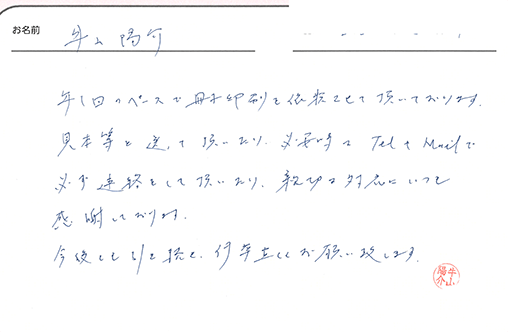 お名前 牛山陽介
年1回のペースで冊子印刷を依頼させて頂いております。
見本等を送って頂いたり、必要時はTelやMailで
必ず連絡をして頂いたり、親切な対応にいつも
感謝しております。
今後とも引き続き、何卒宜しくお願い致します。
牛山陽介